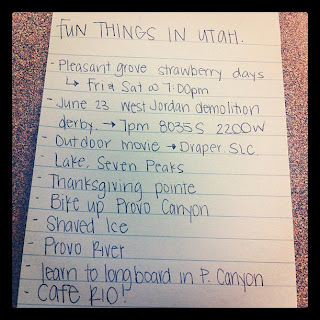 FUN THINGS IN UTAH.
- Pleasant grove strawberry days
↳ Fri & Sat @ 7:00pm
- June 23 West Jordan demolition
derby. → 7pm 8035 S 2200W
- Outdoor movie → Draper. SLC.
- Lake, Seven Peaks
- Thanksgiving pointe
- Bike up Provo Canyon
- Shaved Ice
- Provo River
- learn to longboard in P. Canyon
- CAFE RIO!